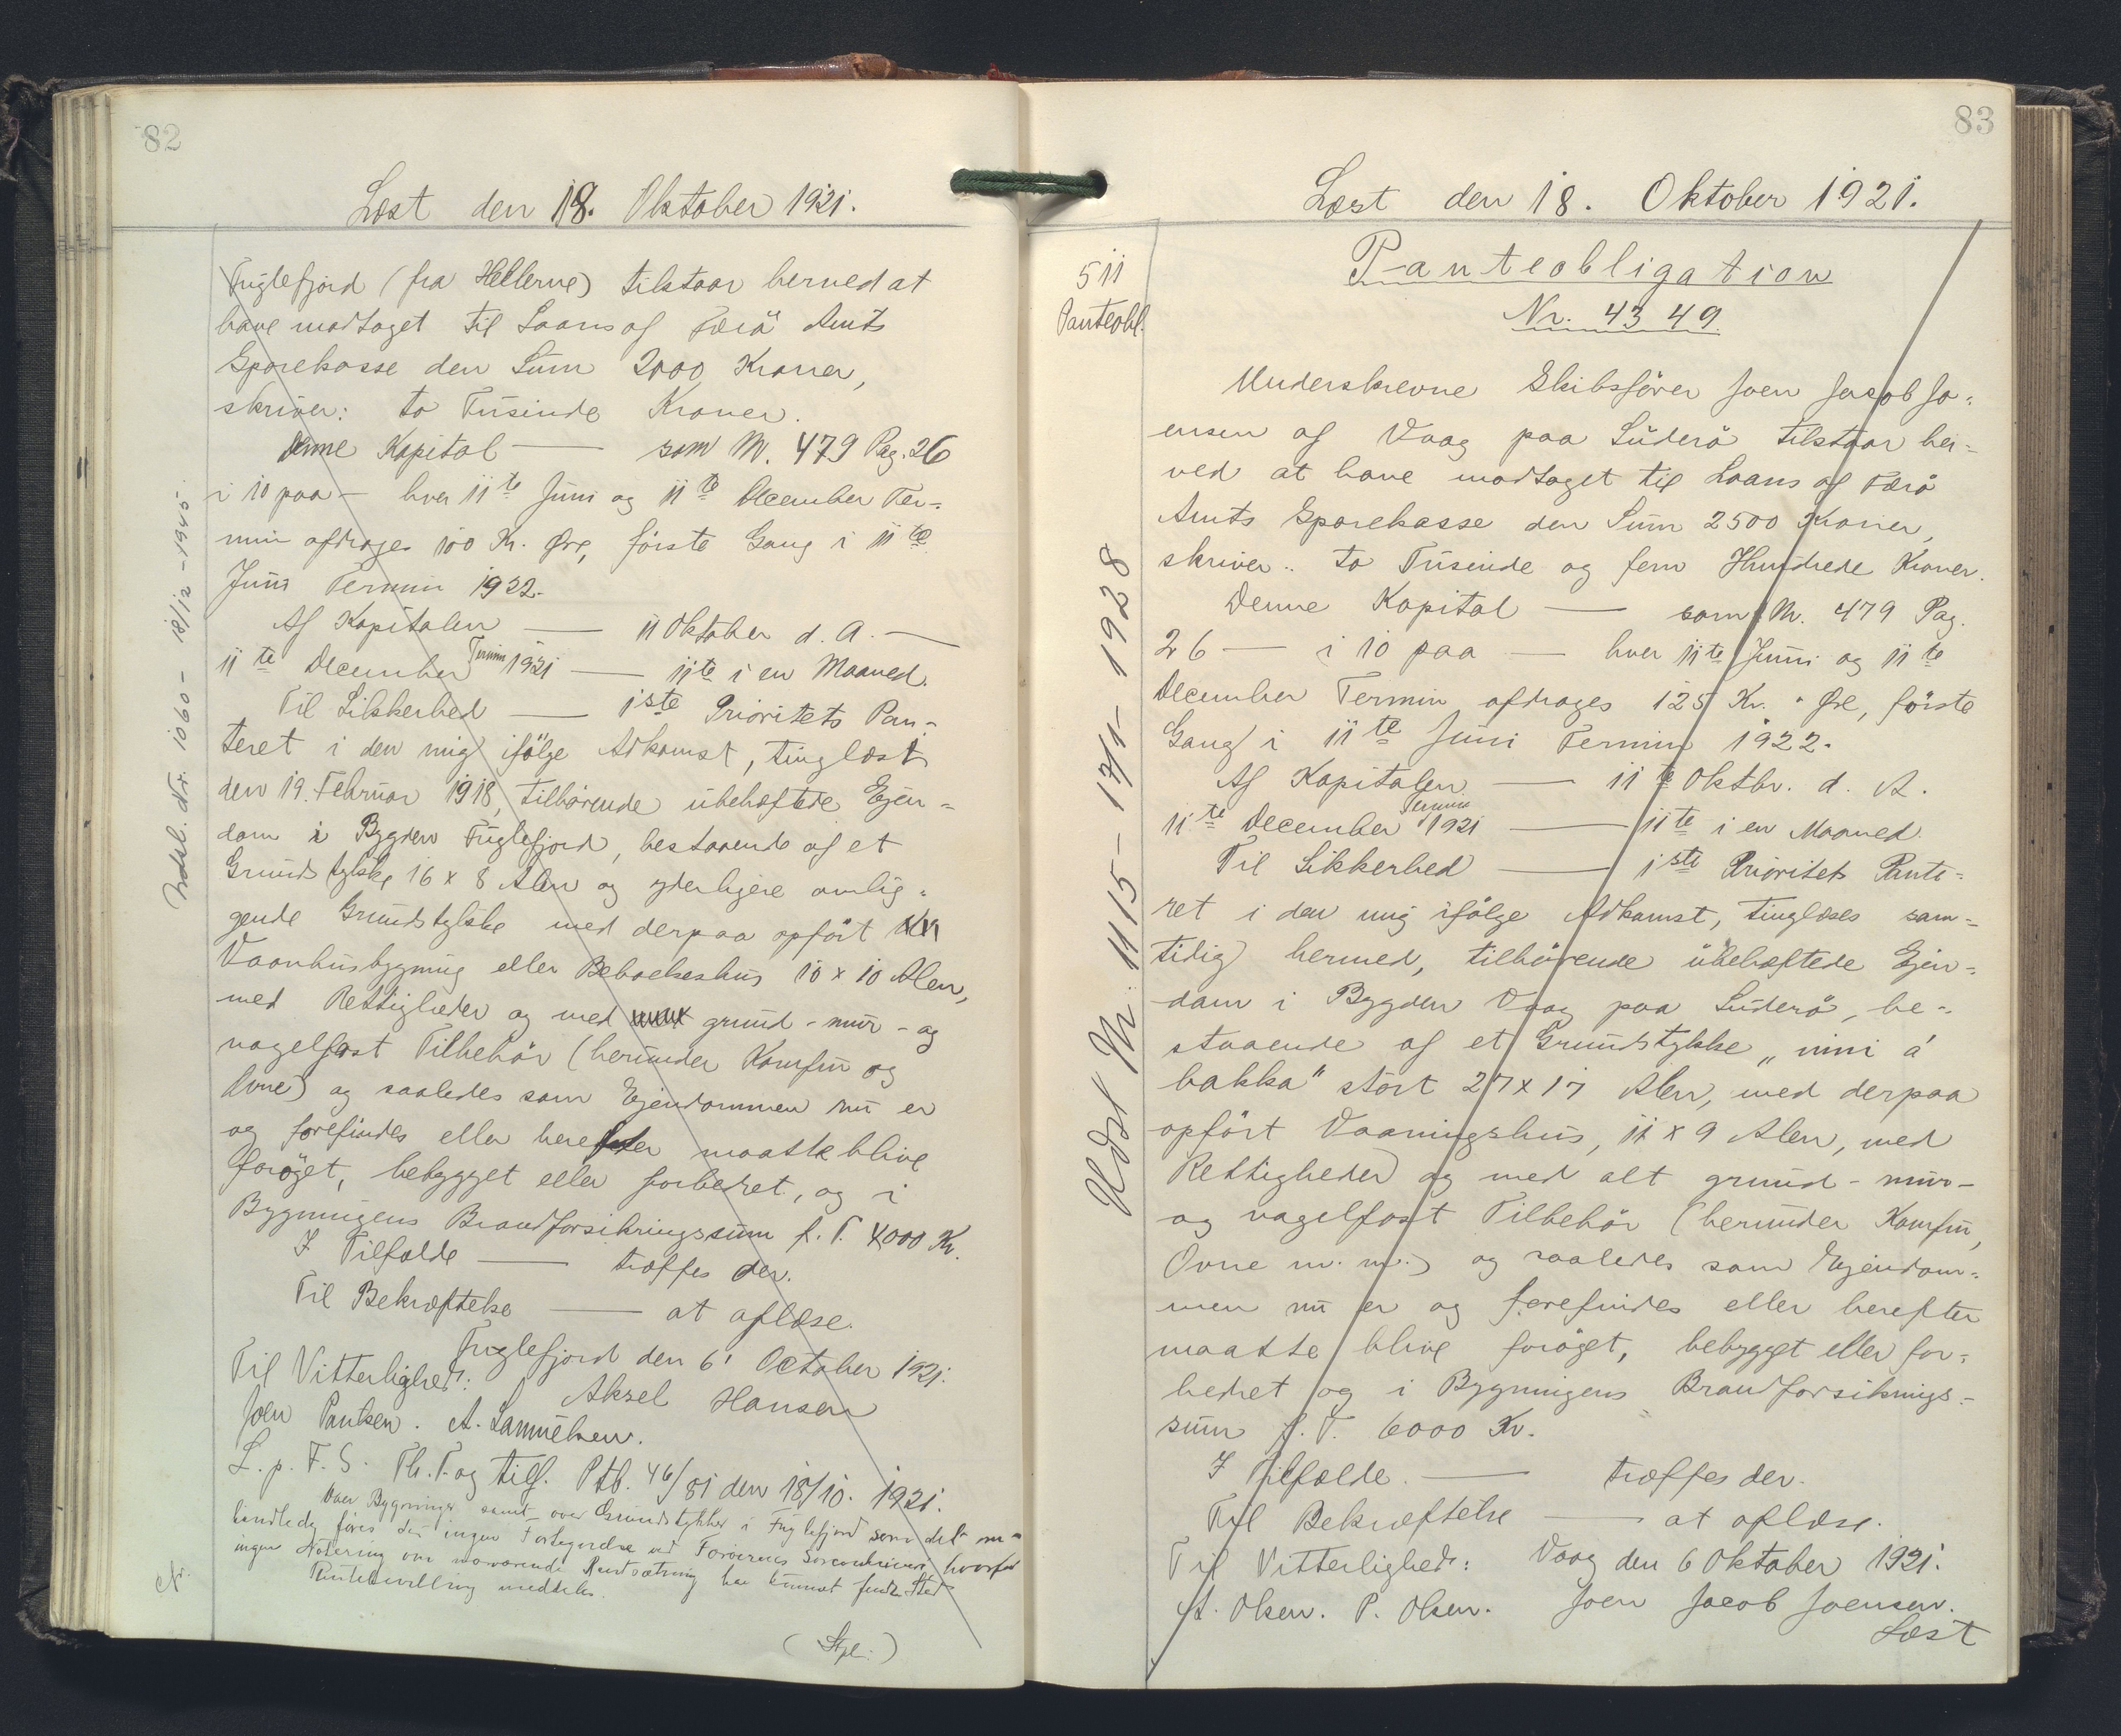 82
Læst den 18. Oktober 1921.
Fuglefjord (fra Hellerne) tilstaar herved at
have modtaget til Laans af Færö Amts
Sparekasse den Sum 2000 Kroner,
skriver: to Tusinde Kroner.
Denne Kapital — som Nr. 479 Pag. 26
i 10 paa — hver 11te Juni og 11te December Ter-
min afdrages 100 Kr. Øre, förste Gang i 11te
Juni Termin 1922.
Af Kapitalen — 11 Oktober d. A. —
11te December Termin 1921 — 11te i en Maaned.
Til Sikkerhed — 1ste Prioritets Pan-
teret i den mig ifölge Adkomst, tinglæst
den 19. Februar 1918, tilhörende ubehæftede Ejen-
dom i Bygden Fuglefjord, bestaaende af et
Grundstykke 16 x 8 Alen og yderligere omlig-
gende Grundstykke med derpaa opført
Vaanhusbygning eller Beboelseshus 10 x 10 Alen,
med Rettigheder og med grund - mur - og
nagelfast Tilbehör (herunder Komfur og
Ovne) og saaledes som Ejendommen nu er
og forefindes eller herefter maatte blive
forøget, bebygget eller forbedret, og i
Bygningens Brandforsikringssum f. T. 4000 Kr.
I Tilfælde — træffes der.
Til Bekræftelse — at aflæse.
Fuglefjord den 6' October 1921.
Til Vitterlighed: Aksel Hansen
Joen Poulsen. A. Samuelsen.
L. p. F. S. Th. T. og tilf. Ptb. 46/81 den 18/10. 1921.
Over Bygninger samt over Grundstykker i Fuglefjord som det om-
handlede føres der ingen Fortegnelse ved Færøernes Sorenskriveri, hvorfor
ingen Notering om nærværende Pantsætning har kunnet finde Sted
meddeles.
(Stpl.:)
Udsl. Nr. 1060 - 18/12 - 1945.
83
Læst den 18. Oktober 1921.
511
Panteobl.
Panteobligation
Nr. 4349
Underskrevne Skibsförer Joen Jacob Jo-
ensen af Vaag paa Süderö tilstaar her-
ved at have modtaget til Laans af Færö
Amts Sparekasse den Sum 2500 Kroner,
skriver: to Tusinde og fem Hundrede Kroner.
Denne Kapital — som Nr. 479 Pag.
26 — i 10 paa — hver 11te Juni og 11te
December Termin afdrages 125 Kr. " Øre, förste
Gang i 11te Juni Termin 1922.
Af Kapitalen — 11te Oktbr. d. A.
11te December Termin 1921 — 11te i en Maaned.
Til Sikkerhed — 1ste Prioritets Pante-
ret i den mig ifölge Adkomst, tinglæses sam-
tidig hermed, tilhörende ubehæftede Ejen-
dom i Bygden Vaag paa Süderö, be-
staaende af et Grundstykke „ inni á
bakka" stört 27 x 17 Alen, med derpaa
opfört Vaaningshus, 11 x 9 Alen, med
Rettigheder og med alt grund - mur -
og nagelfast Tilbehör (herunder Komfur,
Ovne m. m.) og saaledes som Ejendom-
men nu er og forefindes eller herefter
maatte blive forøget, bebygget eller for-
bedret og i Bygningens Brandforsikrings-
sum f. T. 6000 Kr.
I Tilfælde. — træffes der.
Til Bekræftelse — at aflæse.
Til Vitterlighed: Vaag den 6 Oktober 1921.
A. Olsen. P. Olsen. Joen Jacob Joensen.
Læst
Udsl Nr. 1115 - 17/1 - 1928